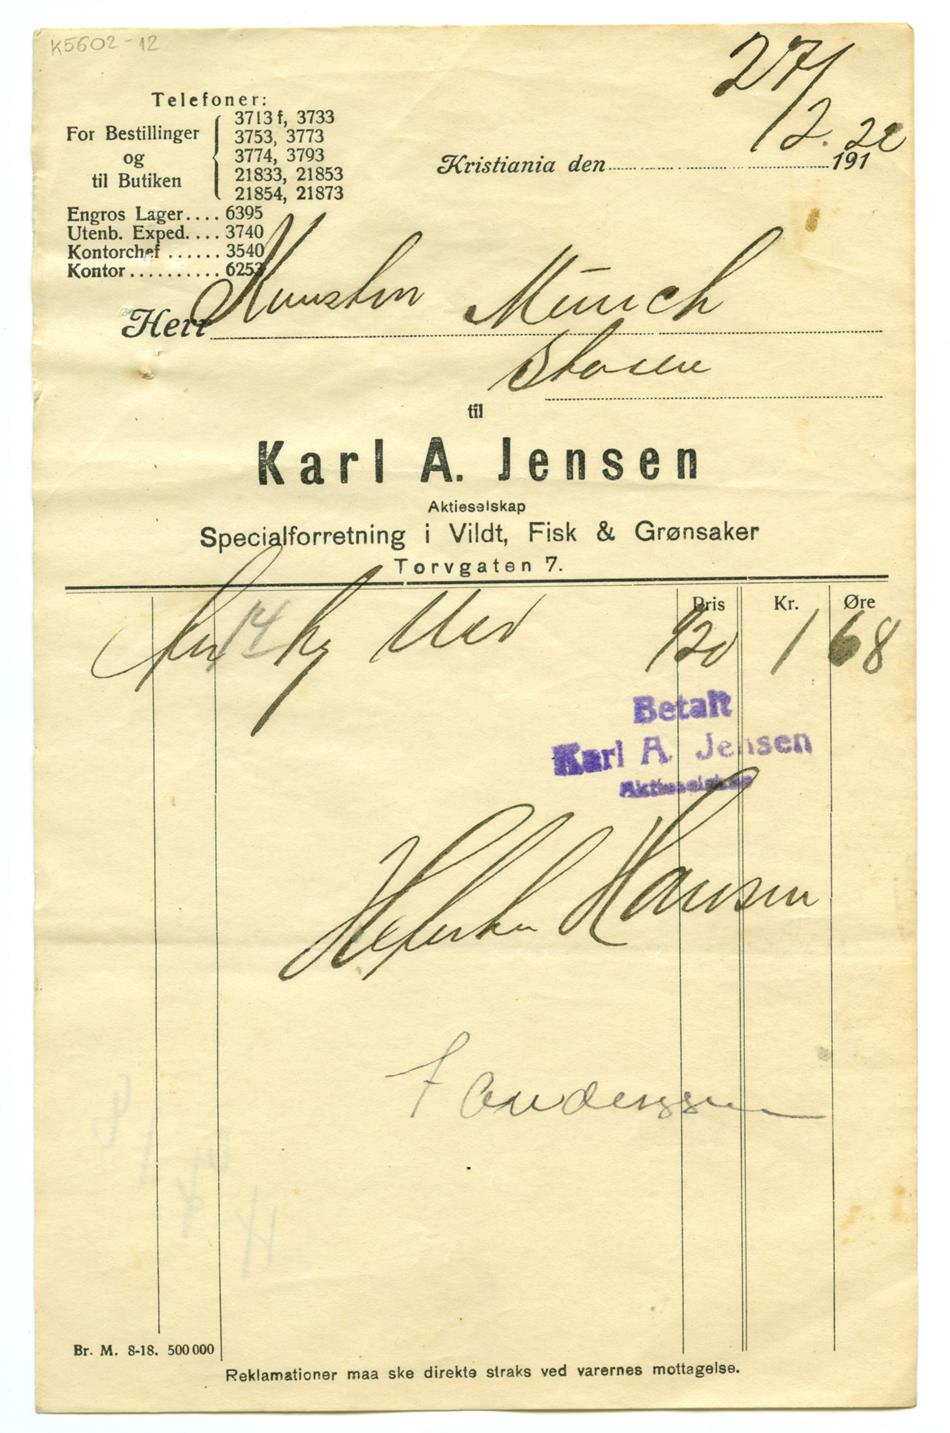 K5602-12
27/2. 22
Telefoner:
For Bestillinger og til Butiken
3713 f, 3733
3753, 3773
3774, 3793
21833, 21853
21854, 21873
Kristiania den 191
Engros Lager.... 6395
Utenb. Exped.... 3740
Kontorchef ...... 3540
Kontor.......... 6253
Herr Kunstm Münch
Skøien
til
Karl A. Jensen
Aktieselskap
Specialforretning i Vildt, Fisk & Grønsaker
Torvgaten 7.
Pris Kr. Øre
14 kg 1/20 1 68
Betalt
Karl A. Jensen
Aktieselskap
Hansen
Br. M. 8-18. 500 000
Reklamationer maa ske direkte straks ved varernes mottagelse.